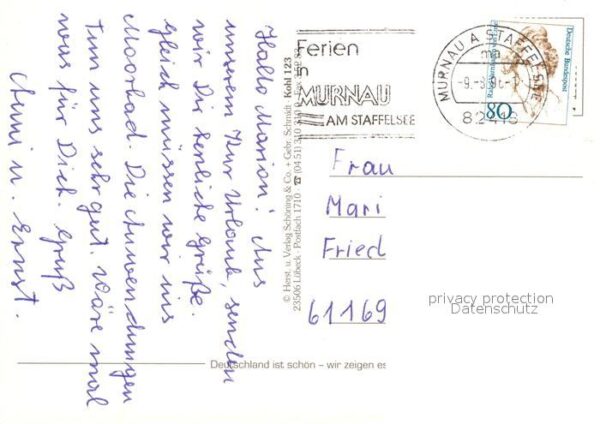 Hallo Marion! Aus
unserem Kur Urlaub, senden
wir Dir herzliche Grüße.
gleich müssen wir ins
Moorbad. Die Anwendungen
Tun uns sehr gut. Wäre mal
was für Dich. Gruß
Anni u. Ernst.
© Herst. u. Verlag Schöning & Co. + Gebr. Schmidt · Kohl 123
23506 Lübeck · Postfach 1710 · ☎ (04 51)
Ferien
in
MURNAU
AM STAFFELSEE
MURNAU A STAFFELSEE
82418
Deutsche Bundespost
80
Frau
Mari
Fried
61169
privacy protection
Datenschutz
Deutschland ist schön – wir zeigen es